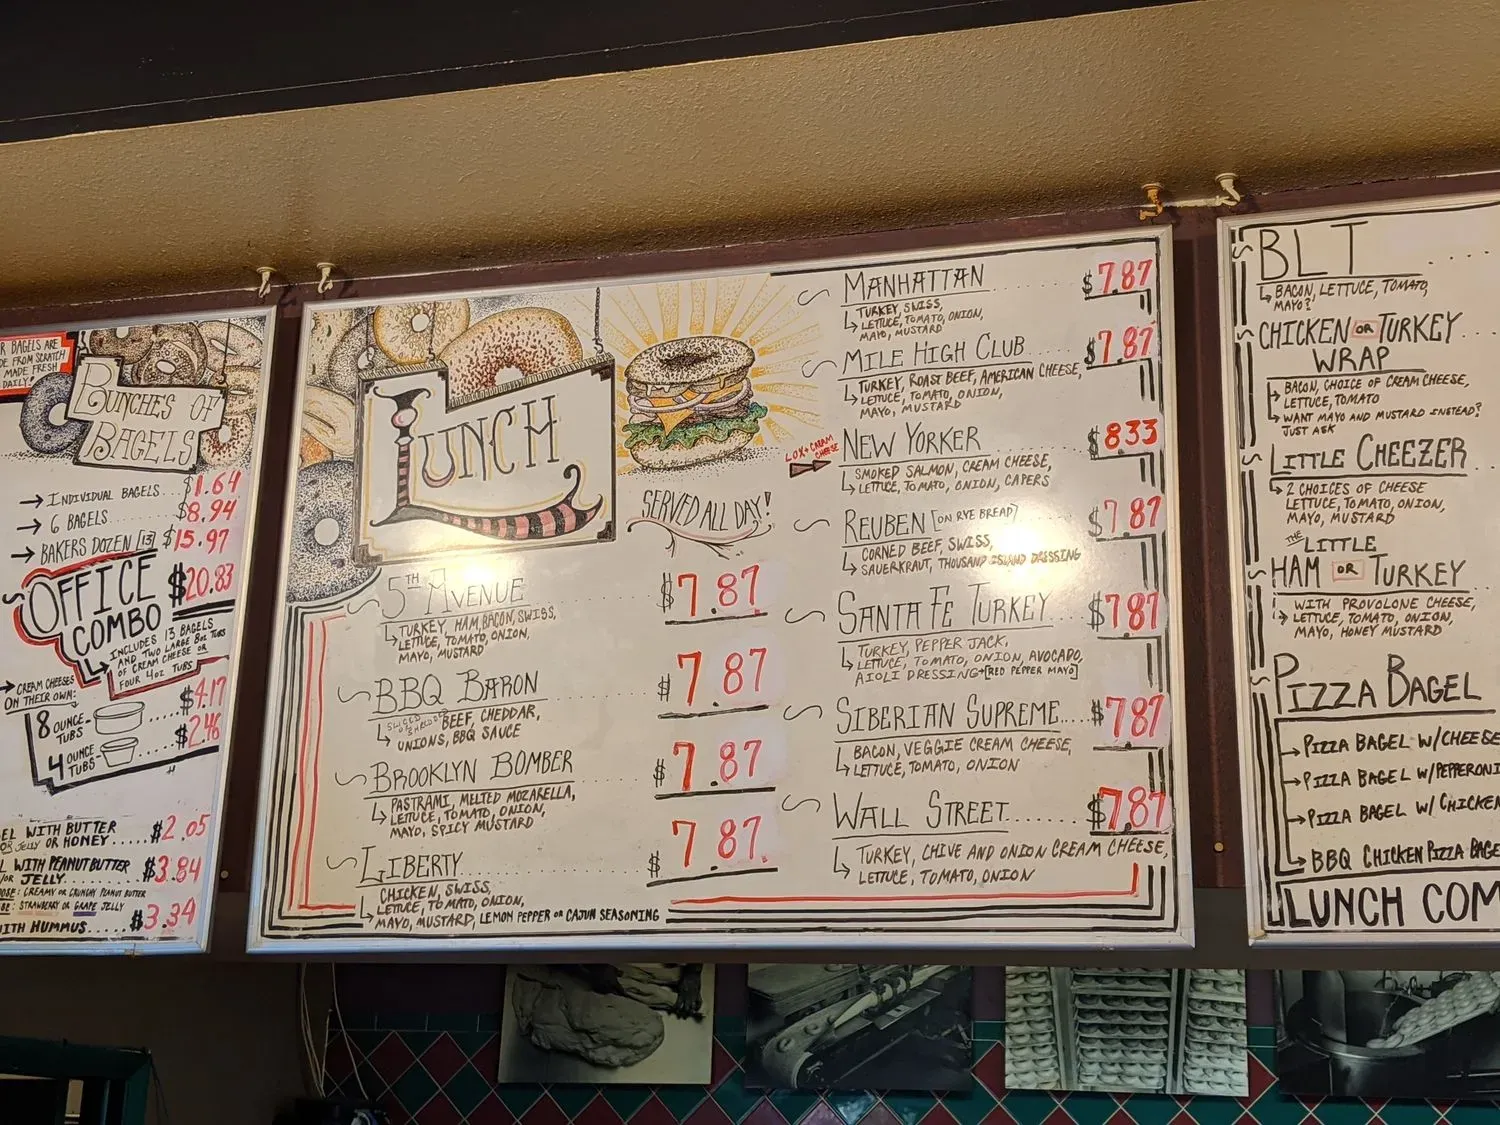 R BAGELS ARE
DE FROM SCRATCH
MADE FRESH
DAILY!
BUNCHES OF
BAGELS
INDIVIDUAL BAGELS... $1.64
6 BAGELS......... $8.94
BAKERS DOZEN [13] $15.97
OFFICE
COMBO $20.83
INCLUDES 13 BAGELS
AND TWO LARGE 8oz TUBS
OF CREAM CHEESE OR
FOUR 4oz TUBS
CREAM CHEESES
ON THEIR OWN:
8 OUNCE
TUBS $4.17
4 OUNCE
TUBS $2.46
EL WITH BUTTER
OR JELLY OR HONEY..... $2.05
L WITH PEANUT BUTTER
/OR JELLY........ $3.84
OOSE: CREAMY OR CRUNCHY PEANUT BUTTER
SE: STRAWBERRY OR GRAPE JELLY
WITH HUMMUS..... $3.34
LUNCH
SERVED ALL DAY!
5TH AVENUE $7.87
TURKEY, HAM, BACON, SWISS,
LETTUCE, TOMATO, ONION,
MAYO, MUSTARD
BBQ BARON $7.87
BEEF, CHEDDAR,
ONIONS, BBQ SAUCE
BROOKLYN BOMBER $7.87
PASTRAMI, MELTED MOZARELLA,
LETTUCE, TOMATO, ONION,
MAYO, SPICY MUSTARD
LIBERTY $7.87
CHICKEN, SWISS,
LETTUCE, TOMATO, ONION,
MAYO, MUSTARD, LEMON PEPPER OR CAJUN SEASONING
MANHATTAN $7.87
TURKEY, SWISS,
LETTUCE, TOMATO, ONION,
MAYO, MUSTARD
MILE HIGH CLUB $7.87
TURKEY, ROAST BEEF, AMERICAN CHEESE,
LETTUCE, TOMATO, ONION,
MAYO, MUSTARD
LOX + CREAM
CHEESE
NEW YORKER $8.33
SMOKED SALMON, CREAM CHEESE,
LETTUCE, TOMATO, ONION, CAPERS
REUBEN [ON RYE BREAD] $7.87
CORNED BEEF, SWISS,
SAUERKRAUT, THOUSAND ISLAND DRESSING
SANTA FE TURKEY $7.87
TURKEY, PEPPER JACK,
LETTUCE, TOMATO, ONION, AVOCADO,
AIOLI DRESSING+[RED PEPPER MAYO]
SIBERIAN SUPREME.... $7.87
BACON, VEGGIE CREAM CHEESE,
LETTUCE, TOMATO, ONION
WALL STREET........ $7.87
TURKEY, CHIVE AND ONION CREAM CHEESE,
LETTUCE, TOMATO, ONION
BLT ....
BACON, LETTUCE, TOMATO,
MAYO?
CHICKEN OR TURKEY
WRAP
BACON, CHOICE OF CREAM CHEESE,
LETTUCE, TOMATO
WANT MAYO AND MUSTARD INSTEAD?
JUST ASK
LITTLE CHEEZER
2 CHOICES OF CHEESE
LETTUCE, TOMATO, ONION,
MAYO, MUSTARD
THE LITTLE
HAM OR TURKEY
WITH PROVOLONE CHEESE,
LETTUCE, TOMATO, ONION,
MAYO, HONEY MUSTARD
PIZZA BAGEL
PIZZA BAGEL W/CHEESE
PIZZA BAGEL W/PEPPERONI
PIZZA BAGEL W/ CHICKEN
BBQ CHICKEN PIZZA BAGE
LUNCH COM